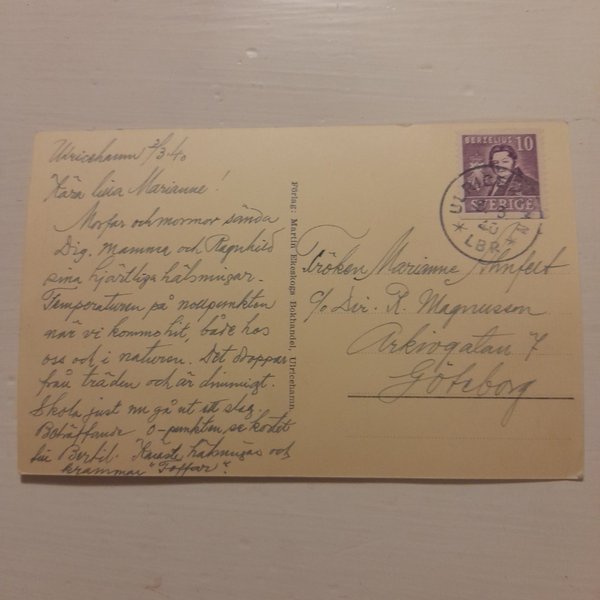 Ulricehamn 2/3 40
Kära lilla Marianne!
Morfar och mormor sända
Dig, Mamma och Ragnhild
sina hjärtliga hälsningar.
Temperaturen på nollpunkten
när vi kommo hit, både hos
oss och i naturen. Det droppar
från träden och är dimmigt.
Skola just nu gå ut ett slag.
Beträffande 0-punkten, se kortet
till Bertil. Käraste hälsningar och
kramar "Foffar".
Förlag: Martin Ekeskogs Bokhandel, Ulricehamn.
BERZELIUS 10
SVERIGE
LBR
Fröken Marianne Ahnfelt
c/o Dir. R. Magnusson
Arkivgatan 7
Göteborg